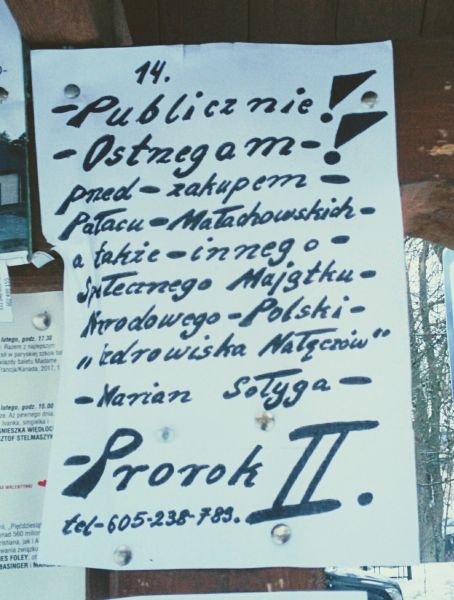 14.
-Publicznie!
-Ostrzegam-!
przed-zakupem-
Pałacu-Małachowskich-
a także-innego-
Społecznego Majątku-
Narodowego-Polski-
„Uzdrowiska Nałęczów"
-Marian Sołyga-
-Prorok II.
tel-605-238-789.
lutego, godz. 17.30
. Razem z najlepszym
sił w paryskiej szkole tań
Francja/Kanada, 2017, 1
lutego, godz. 15.00
że. Aż pewnego dnia,
Ivanka, singielka i
GNIESZKA WIĘDŁOCH
SZTOF STELMASZYK
„Pięćdziesiąt
ponad 560 milion
ristiana, jak i A
owania związku
ES FOLEY,
BASINGER i